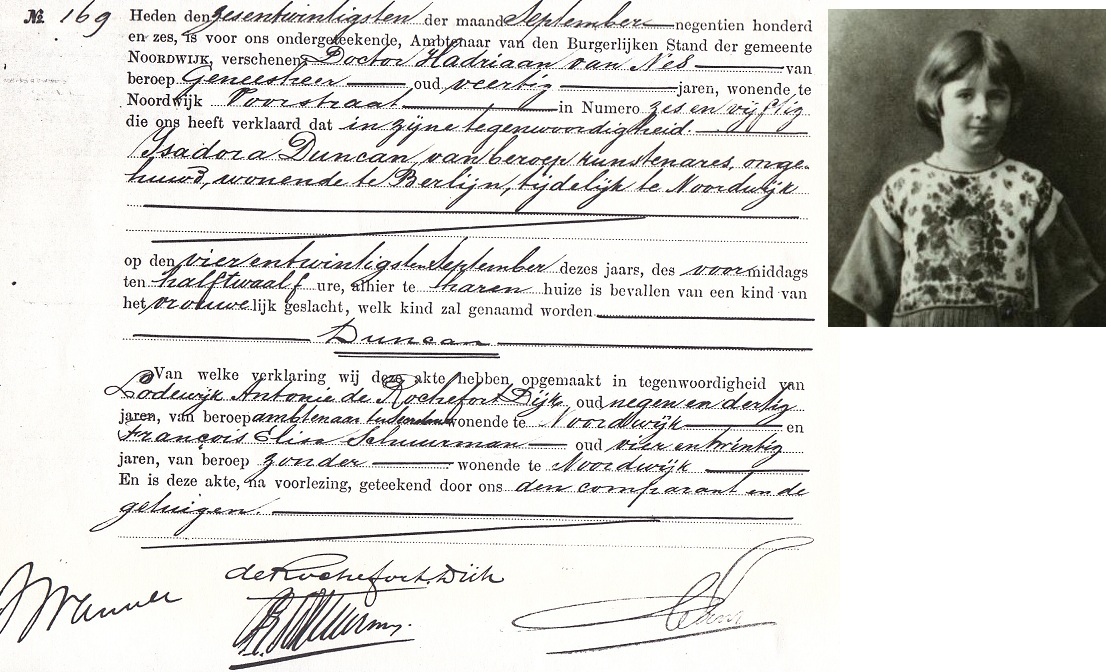 № 169 Heden den zesentwintigsten der maand September negentien honderd
en zes, is voor ons ondergeteekende, Ambtenaar van den Burgerlijken Stand der gemeente
NOORDWIJK, verschenen Doctor Hadriaan van Nes van
beroep Geneesheer oud veertig jaren, wonende te
Noordwijk Voorstraat in Numero zes en vijftig
die ons heeft verklaard dat in zijne tegenwoordigheid.
Isadora Duncan, van beroep kunstenares, onge-
huwd, wonende te Berlijn, tijdelijk te Noordwijk
op den vier entwintigsten September dezes jaars, des voormiddags
ten halftwaalf ure, alhier te haren huize is bevallen van een kind van
het vrouwelijk geslacht, welk kind zal genaamd worden
Duncan
Van welke verklaring wij deze akte hebben opgemaakt in tegenwoordigheid van
Lodewijk Antonie de Rochefort Dijk, oud negen en dertig
jaren, van beroep ambtenaar ter wonende te Noordwijk en
François Elisa Schuurman oud vier entwintig
jaren, van beroep zonder wonende te Noordwijk
En is deze akte, na voorlezing, geteekend door ons den comparant en de
getuigen.
de Rochefort Dijk